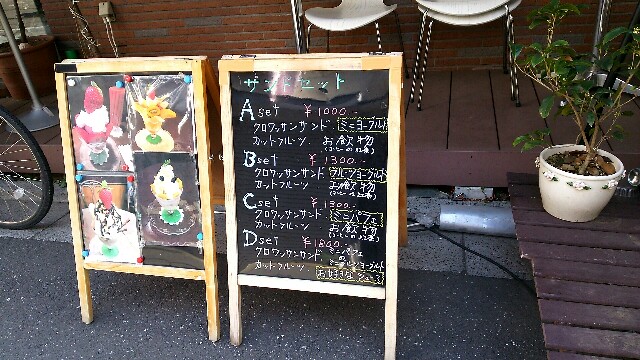 サンドセット
A set ￥1000.-
クロワッサンサンド. ミニヨーグルト
カットフルーツ お飲物
B set ￥1300.-
クロワッサンサンド フルーツヨーグルト
カットフルーツ お飲物
C set ￥1300.-
クロワッサンサンド ミニパフェ
カットフルーツ お飲物
D set ￥1800.-
クロワッサンサンド ミニパフェ
の
カットフルーツ
お好きなジュース